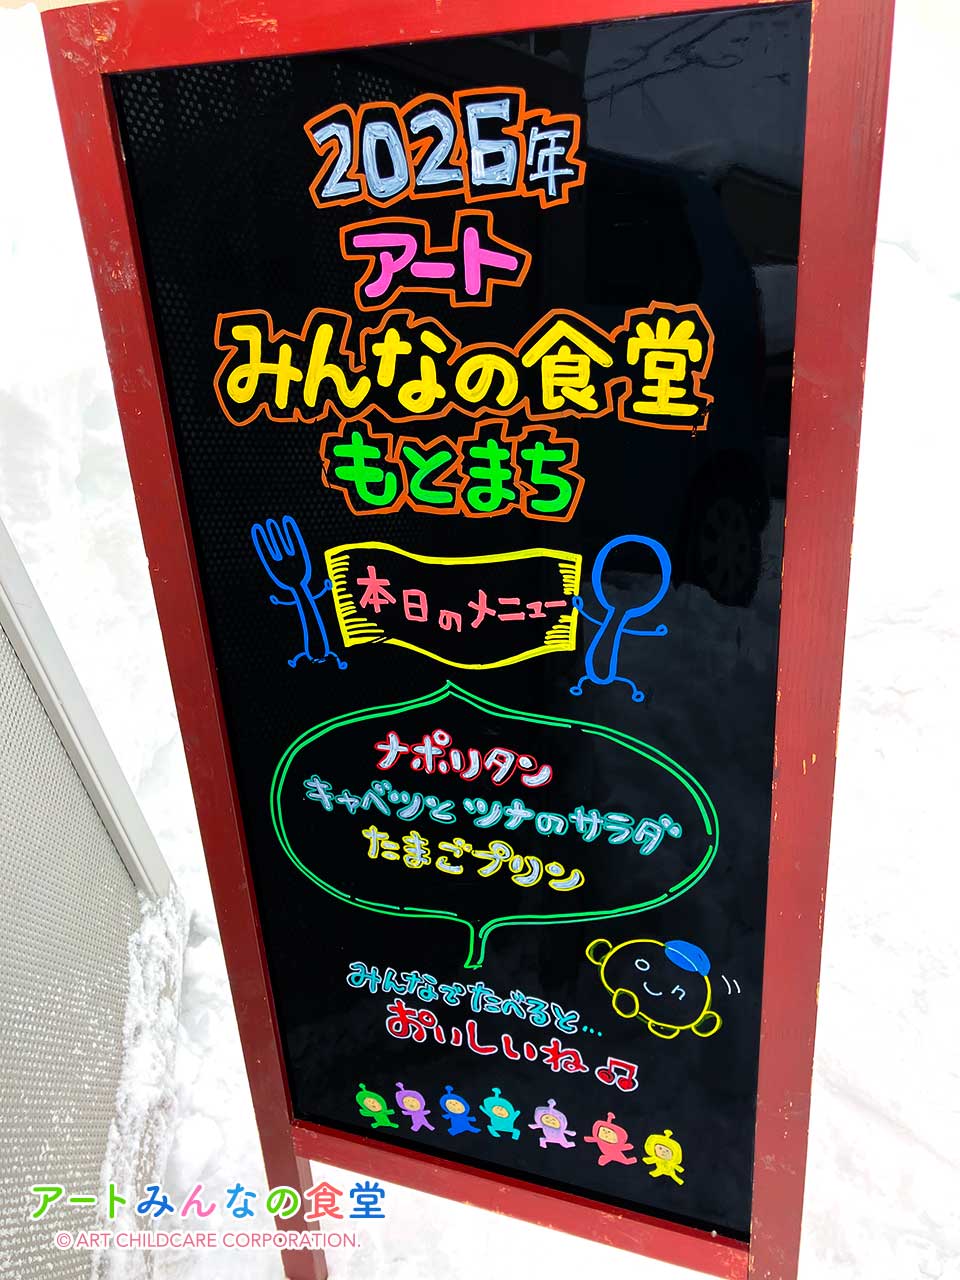 2026年
アート
みんなの食堂
もとまち
本日のメニュー
ナポリタン
キャベツとツナのサラダ
たまごプリン
みんなでたべると...
おいしいね♫
アートみんなの食堂
© ART CHILDCARE CORPORATION.